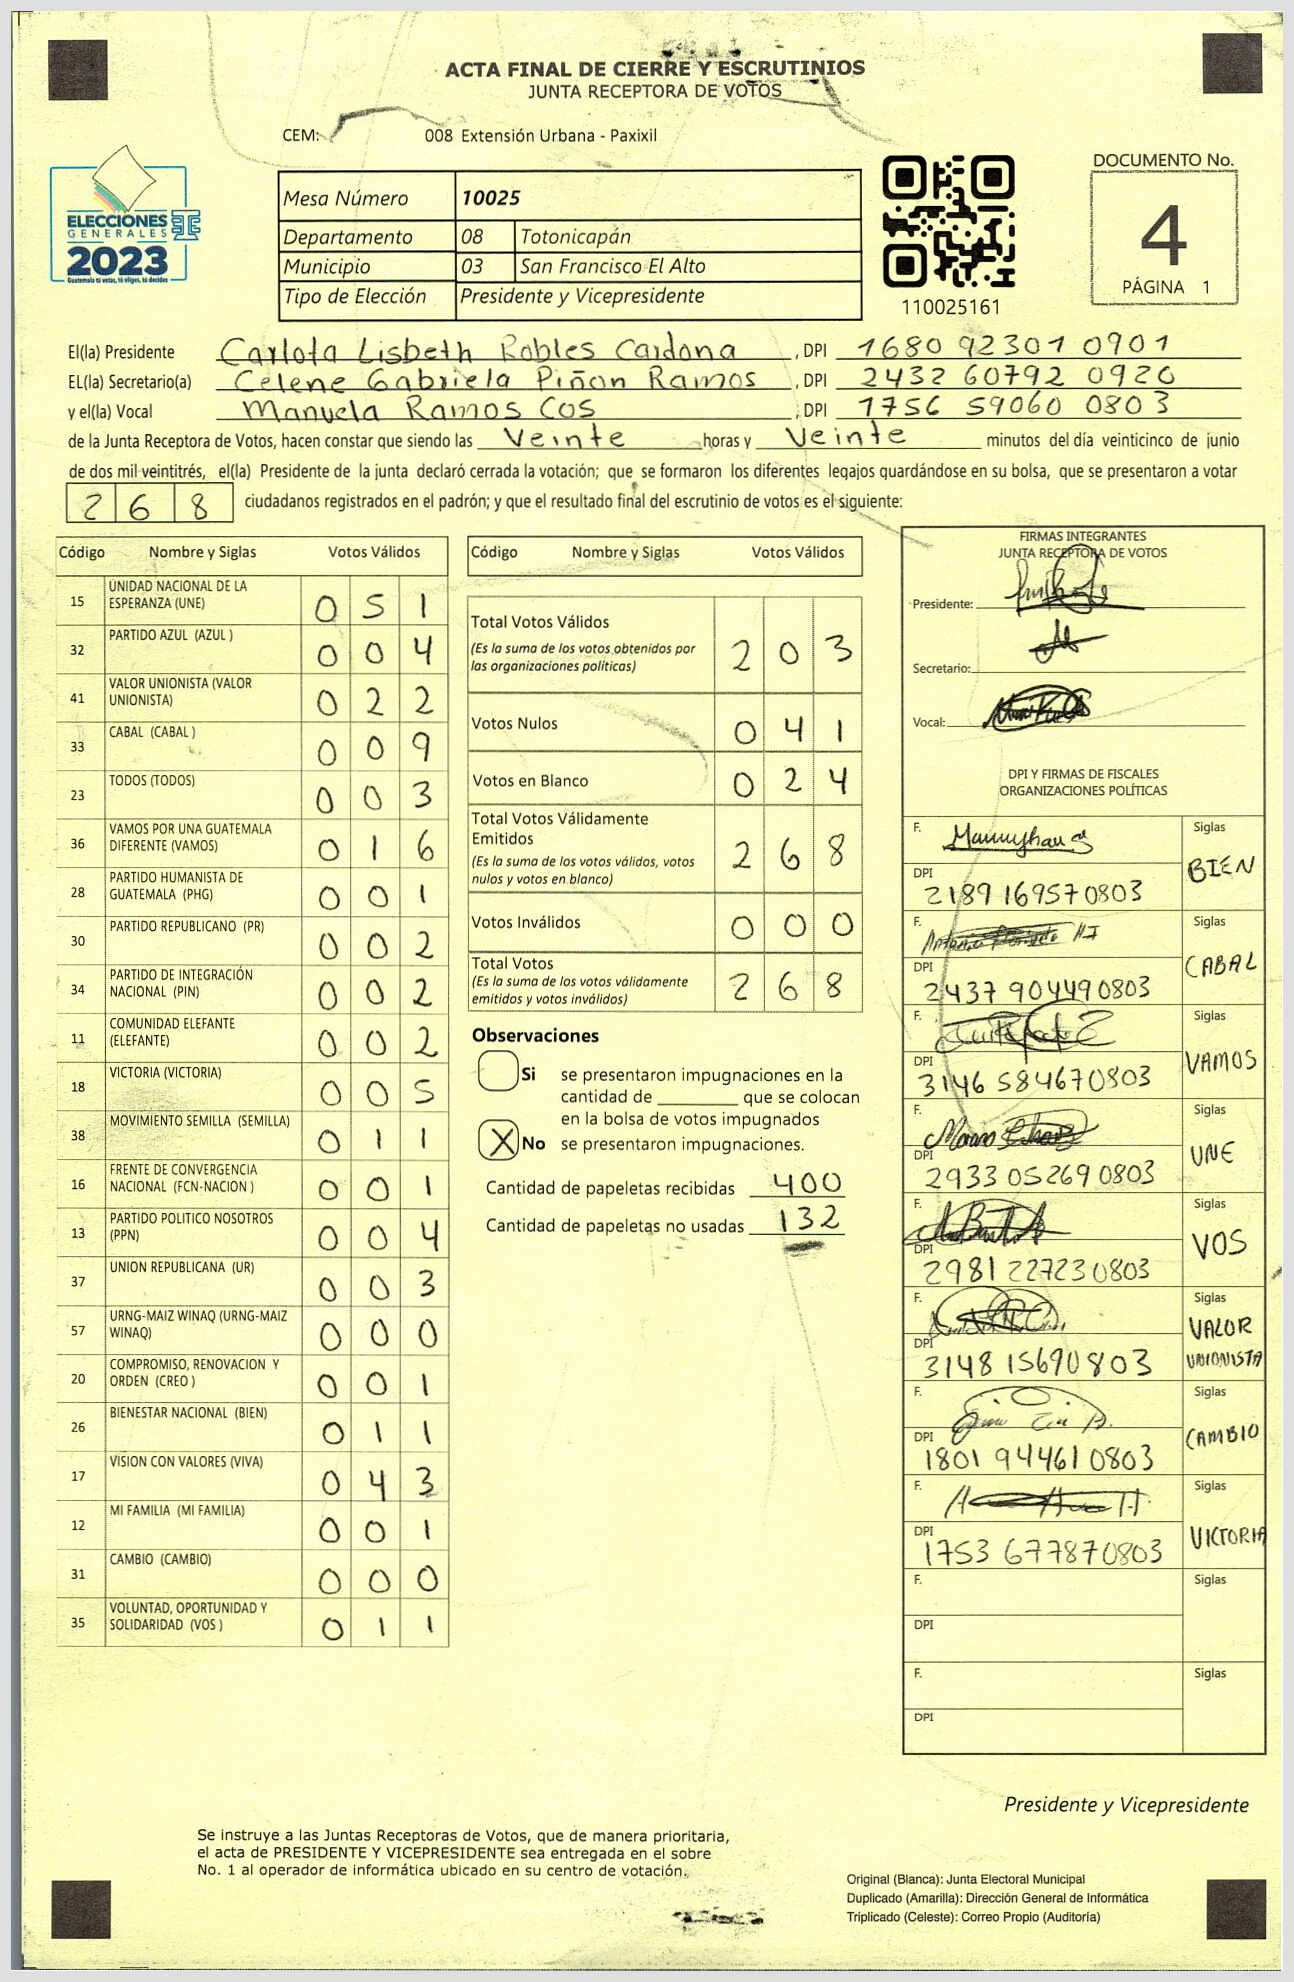 ACTA FINAL DE CIERRE Y ESCRUTINIOS
JUNTA RECEPTORA DE VOTOS
CEM: 008 Extensión Urbana - Paxixil
ELECCIONES
GENERALES
2023
Guatemala tú votas, tú eliges, tú decides
Mesa Número 10025
Departamento 08 Totonicapán
Municipio 03 San Francisco El Alto
Tipo de Elección Presidente y Vicepresidente
110025161
DOCUMENTO No.
4
PÁGINA 1
El(la) Presidente Carlota Lisbeth Robles Cardona, DPI 1680 92301 0901
EL(la) Secretario(a) Celene Gabriela Piñon Ramos, DPI 2432 60792 0920
y el(la) Vocal Manuela Ramos Cos, DPI 1756 59060 0803
de la Junta Receptora de Votos, hacen constar que siendo las Veinte horas y Veinte minutos del día veinticinco de junio
de dos mil veintitrés, el(la) Presidente de la junta declaró cerrada la votación; que se formaron los diferentes legajos guardándose en su bolsa, que se presentaron a votar
268 ciudadanos registrados en el padrón; y que el resultado final del escrutinio de votos es el siguiente:
Código Nombre y Siglas Votos Válidos
15 UNIDAD NACIONAL DE LA ESPERANZA (UNE) 051
32 PARTIDO AZUL (AZUL ) 004
41 VALOR UNIONISTA (VALOR UNIONISTA) 022
33 CABAL (CABAL ) 009
23 TODOS (TODOS) 003
36 VAMOS POR UNA GUATEMALA DIFERENTE (VAMOS) 016
28 PARTIDO HUMANISTA DE GUATEMALA (PHG) 001
30 PARTIDO REPUBLICANO (PR) 002
34 PARTIDO DE INTEGRACIÓN NACIONAL (PIN) 002
11 COMUNIDAD ELEFANTE (ELEFANTE) 002
18 VICTORIA (VICTORIA) 005
38 MOVIMIENTO SEMILLA (SEMILLA) 011
16 FRENTE DE CONVERGENCIA NACIONAL (FCN-NACION ) 001
13 PARTIDO POLITICO NOSOTROS (PPN) 004
37 UNION REPUBLICANA (UR) 003
57 URNG-MAIZ WINAQ (URNG-MAIZ WINAQ) 000
20 COMPROMISO, RENOVACION Y ORDEN (CREO ) 001
26 BIENESTAR NACIONAL (BIEN) 011
17 VISION CON VALORES (VIVA) 043
12 MI FAMILIA (MI FAMILIA) 001
31 CAMBIO (CAMBIO) 000
35 VOLUNTAD, OPORTUNIDAD Y SOLIDARIDAD (VOS ) 011
Código Nombre y Siglas Votos Válidos
Total Votos Válidos 203
(Es la suma de los votos obtenidos por
las organizaciones políticas)
Votos Nulos 041
Votos en Blanco 024
Total Votos Válidamente
Emitidos 268
(Es la suma de los votos válidos, votos
nulos y votos en blanco)
Votos Inválidos 000
Total Votos 268
(Es la suma de los votos válidamente
emitidos y votos inválidos)
Observaciones
Si se presentaron impugnaciones en la
cantidad de ________ que se colocan
en la bolsa de votos impugnados
X No se presentaron impugnaciones.
Cantidad de papeletas recibidas 400
Cantidad de papeletas no usadas 132
FIRMAS INTEGRANTES
JUNTA RECEPTORA DE VOTOS
Presidente:
Secretario:
Vocal:
DPI Y FIRMAS DE FISCALES
ORGANIZACIONES POLÍTICAS
F. Siglas
BIEN
DPI
2189 16957 0803
F. Siglas
CABAL
DPI
2437 90449 0803
F. Siglas
VAMOS
DPI
3146 58467 0803
F. Siglas
UNE
DPI
2933 05269 0803
F. Siglas
VOS
DPI
2981 22723 0803
F. Siglas
VALOR
UNIONISTA
DPI
3148 15690803
F. Siglas
CAMBIO
DPI
1801 94461 0803
F. Siglas
VICTORIA
DPI
1753 67787 0803
F. Siglas
DPI
F. Siglas
DPI
Presidente y Vicepresidente
Se instruye a las Juntas Receptoras de Votos, que de manera prioritaria,
el acta de PRESIDENTE Y VICEPRESIDENTE sea entregada en el sobre
No. 1 al operador de informática ubicado en su centro de votación.
Original (Blanca): Junta Electoral Municipal
Duplicado (Amarilla): Dirección General de Informática
Triplicado (Celeste): Correo Propio (Auditoría)